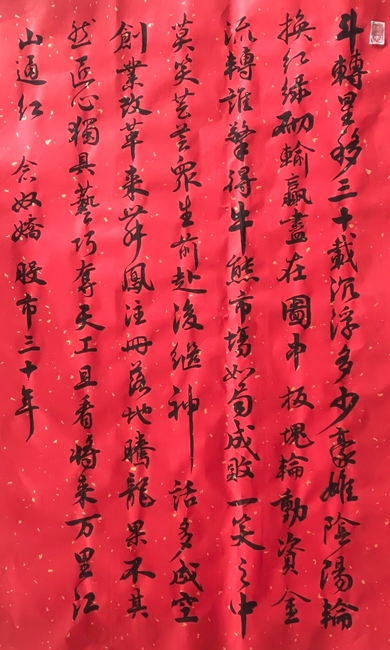 斗轉星移三十載沉浮多少豪雄陰陽輪
換紅綠砌輸贏盡在圖中板塊輪動資金
流轉誰擎得牛熊市場如成敗一笑之中
莫笑芸芸眾生前赴後繼神話多成空
創業改革來鳳注冊落地騰龍果不其
然匠心獨具藝巧奪天工且看將來万里江
山通紅 念奴嬌 股市三十年